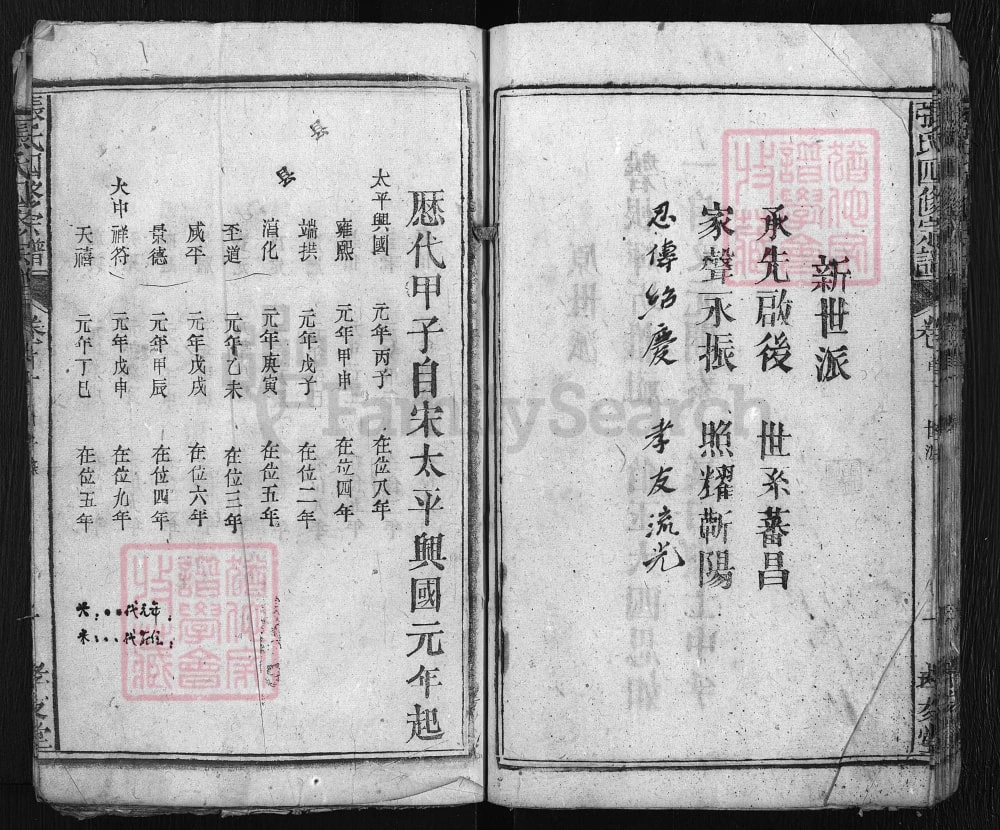 張氏四修宗譜
卷首
世派
孝友堂
新世派
承先啟後 世系蕃昌
家聲永振 照耀蘄陽
忍傳紹慶 孝友流光
歷代甲子自宋太平興國元年起
太平興國 元年丙子 在位八年
雍熙 元年甲申 在位四年
端拱 元年戊子 在位二年
淳化 元年庚寅 在位五年
至道 元年乙未 在位三年
咸平 元年戊戌 在位六年
景德 元年甲辰 在位四年
大中祥符 元年戊申 在位九年
天禧 元年丁巳 在位五年
張氏四修宗譜
卷首
孝友堂
譜學會
FamilySearch